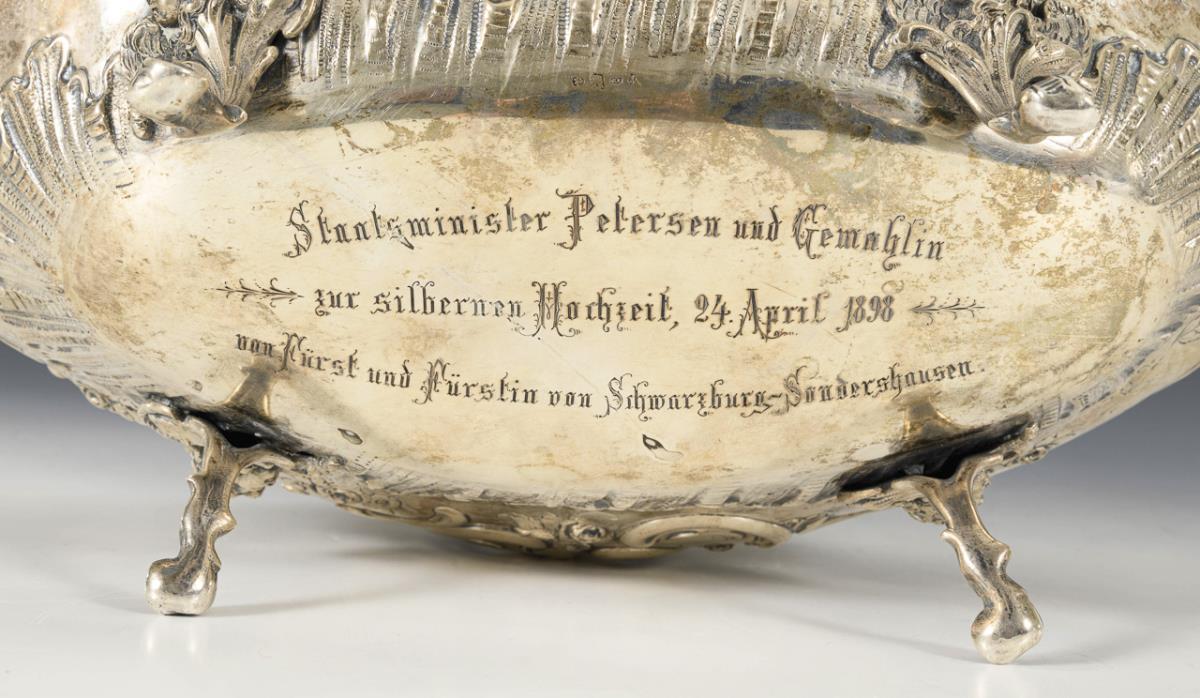 Staatsminister Petersen und Gemahlin
zur silbernen Hochzeit, 24. April 1898
von Fürst und Fürstin von Schwarzburg-Sondershausen.